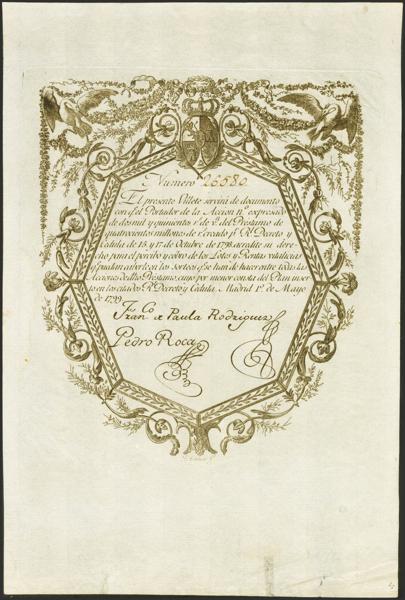 Numero 26680.
El presente Villete servirá de documento
con q.e el Portador de la Accion n.º expresado
de dos mil y quinientos r.s de v.n del Prestamo de
quatrocientos millones de r.s creado p.r R. Decreto y
Cedula de 15 y 17 de Octubre de 1798 acredite su dere-
cho para el percibo y cobro de los Lotes y Rentas vitalicias
q.e puedan caberle en los Sorteos q.e se han de hacer entre todas las
Acciones de dho Prestamo, como por menor consta del Plan inser-
to en los citados R. Decreto y Cedula. Madrid 1.º de Mayo
de 1799.
Fran.co de Paula Rodriguez
Pedro Roca